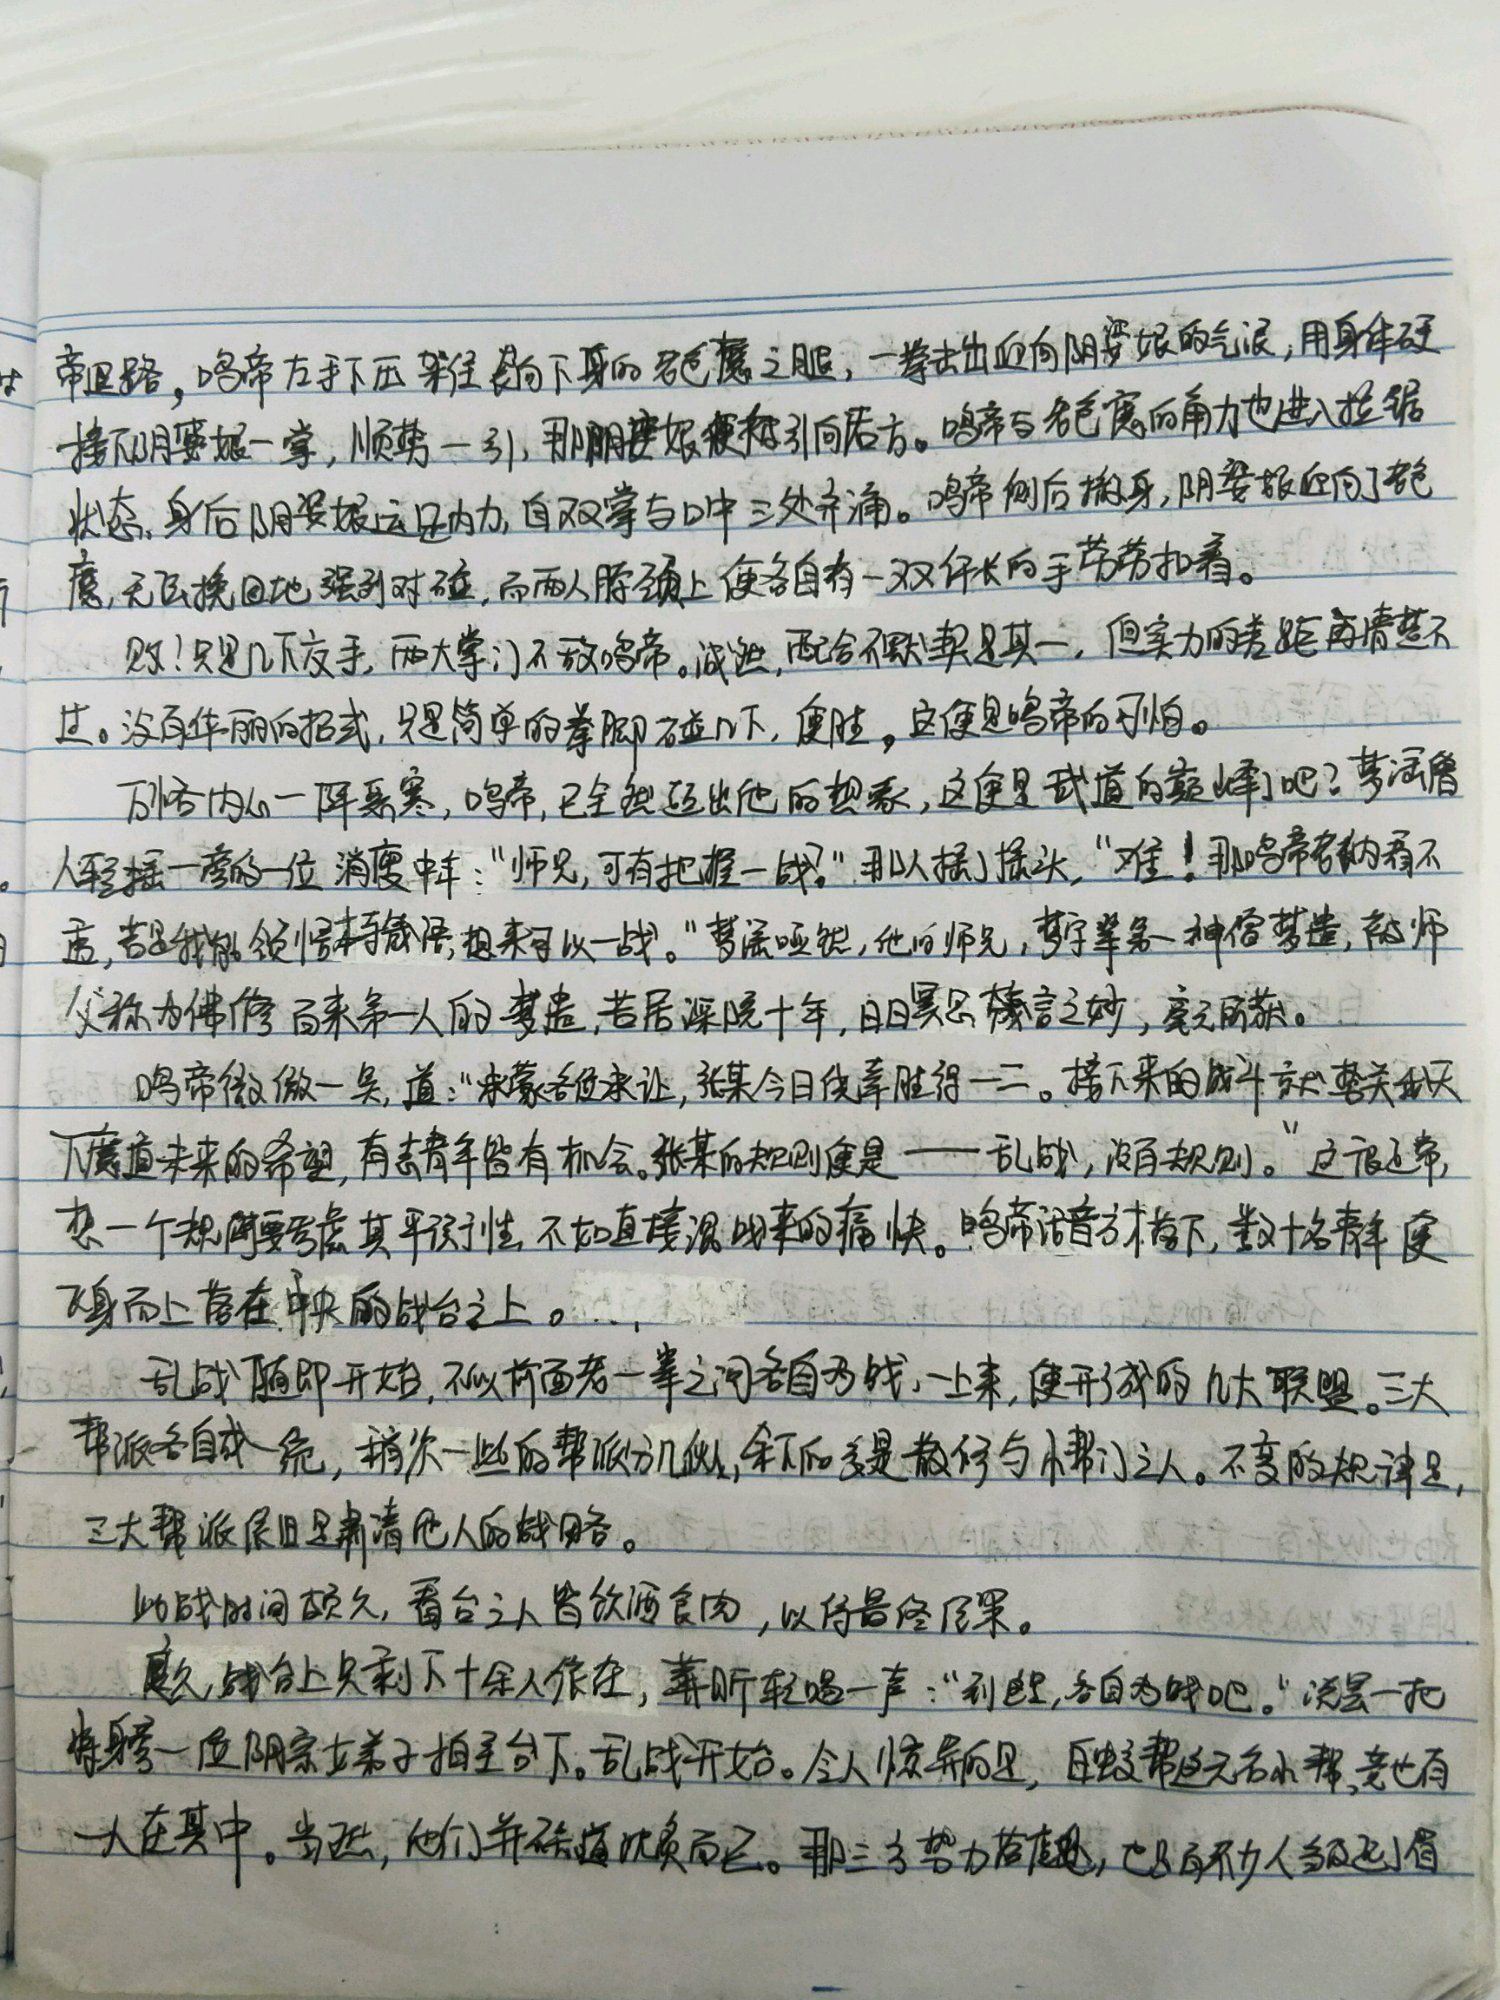 帝退路。鸣帝左手下压架住袭向下身的老色魔之腿，一拳击出迎向阴婴娘的气浪，用身体硬
接下阴婴娘一掌，顺势一引，那阴婴娘便被引向后方。鸣帝与老色魔的角力也进入拉锯
状态，身后阴婴娘运足内力，自双掌与口中三处齐涌。鸣帝侧后撤身，阴婴娘迎向了老色
魔，无法挽回地强烈对碰，而两人脖颈上便各自有一双纤长的手劳劳扣着。
败！只是几下交手，两大掌门不敌鸣帝。诚然，配合不默契是其一，但实力的差距再清楚不
过。没有华丽的招式，只是简单的拳脚碰几下，便胜。这便是鸣帝的可怕。
万悟内心一阵恶寒，鸣帝，已全然超出他的想象，这便是武道的巅峰了吧？梦涵僧
人轻摇一旁的一位消瘦中年：“师兄，可有把握一战？”那人摇了摇头，“难！那鸣帝老衲看不
透，若是我能领悟本寺箴语，想来可以一战。”梦涵哑然，他的师兄，梦字辈第一神僧梦遗，被师
父称为佛修百来第一人的梦遗，苦居深院十年，日日冥思箴言之妙，毫无所获。
鸣帝微微一笑，道：“承蒙各位承让，张某今日侥幸胜得一二。接下来的战斗就整关我天
下魔道未来的希望，有志青年皆有机会。张某的规则便是——乱战，没有规则。”这很正常，
想一个规则要考虑其平衡性，不如直接混战来的痛快。鸣帝话音方才落下，数十名青年便
飞身而上落在中央的战台之上。
乱战随即开始，不似前面老一辈之间各自为战，一上来，便形成的几大联盟。三大
帮派各自成一统，稍次一些的帮派分几伙，余下的多是散修与小帮门之人。不变的规律是，
三大帮派依旧是肃清他人的战略。
此战时间颇久，看台之人皆饮酒食肉，以待最终结果。
良久，战台上只剩下十余人依在，莽昕轻喝一声：“到此，各自为战吧。”说罢一把
将身旁一位阴宗女弟子拍至台下。乱战开始。令人惊异的是，白蛟帮这无名小帮，竟也有
一人在其中。当然，他们并不知道此员而已。那三方势力若在，也只有不少人当及飞了眉